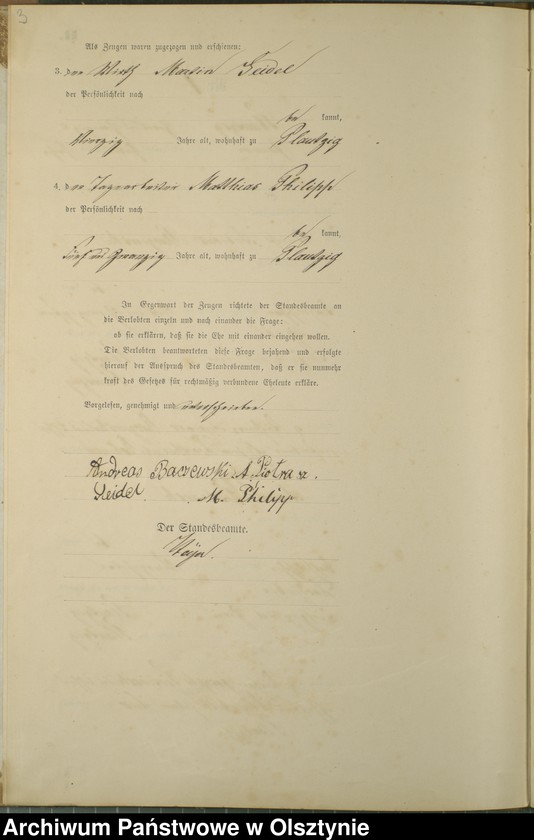 3
Als Zeugen waren zugezogen und erschienen:
3. der Wirth Martin Seidel
der Persönlichkeit nach
be kannt,
vierzig Jahre alt, wohnhaft zu Plautzig
4. der Tagearbeiter Matthias Philipp
der Persönlichkeit nach
be kannt,
fünf und zwanzig Jahre alt, wohnhaft zu Plautzig
In Gegenwart der Zeugen richtete der Standesbeamte an
die Verlobten einzeln und nach einander die Frage:
ob sie erklären, daß sie die Ehe mit einander eingehen wollen.
Die Verlobten beantworteten diese Frage bejahend und erfolgte
hierauf der Ausspruch des Standesbeamten, daß er sie nunmehr
kraft des Gesetzes für rechtmäßig verbundene Eheleute erkläre.
Vorgelesen, genehmigt und unterschrieben.
Andreas Baczewski A.
Seidel. M. Philipp
Der Standesbeamte.
Archiwum Państwowe w Olsztynie